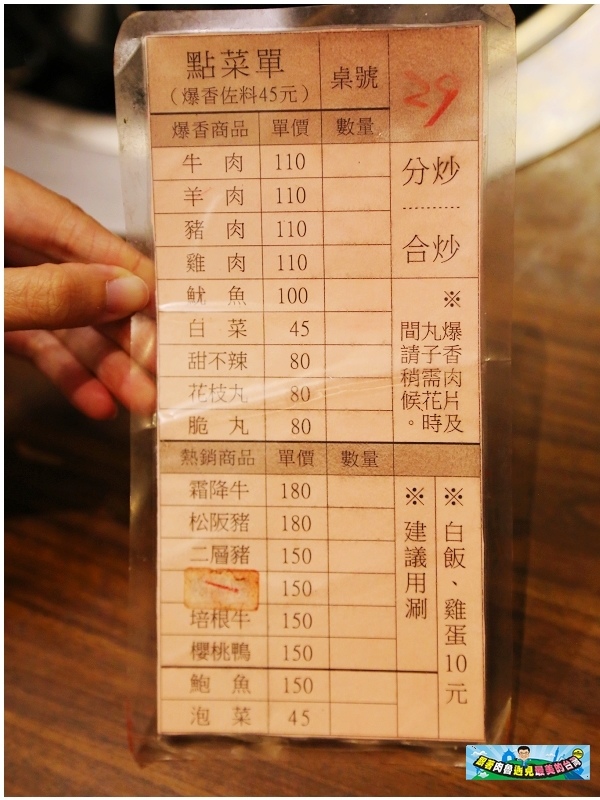 點菜單
(爆香佐料45元)
桌號
29
爆香商品 單價 數量
牛肉 110
羊肉 110
豬肉 110
雞肉 110
魷魚 100
白菜 45
甜不辣 80
花枝丸 80
脆丸 80
分炒
合炒
※爆香肉片及
丸子需花時
間請稍候。
熱銷商品 單價 數量
霜降牛 180
松阪豬 180
二層豬 150
150
培根牛 150
櫻桃鴨 150
鮑魚 150
泡菜 45
※白飯、雞蛋10元
※建議用涮
跟著肉魯遇見最美的台灣